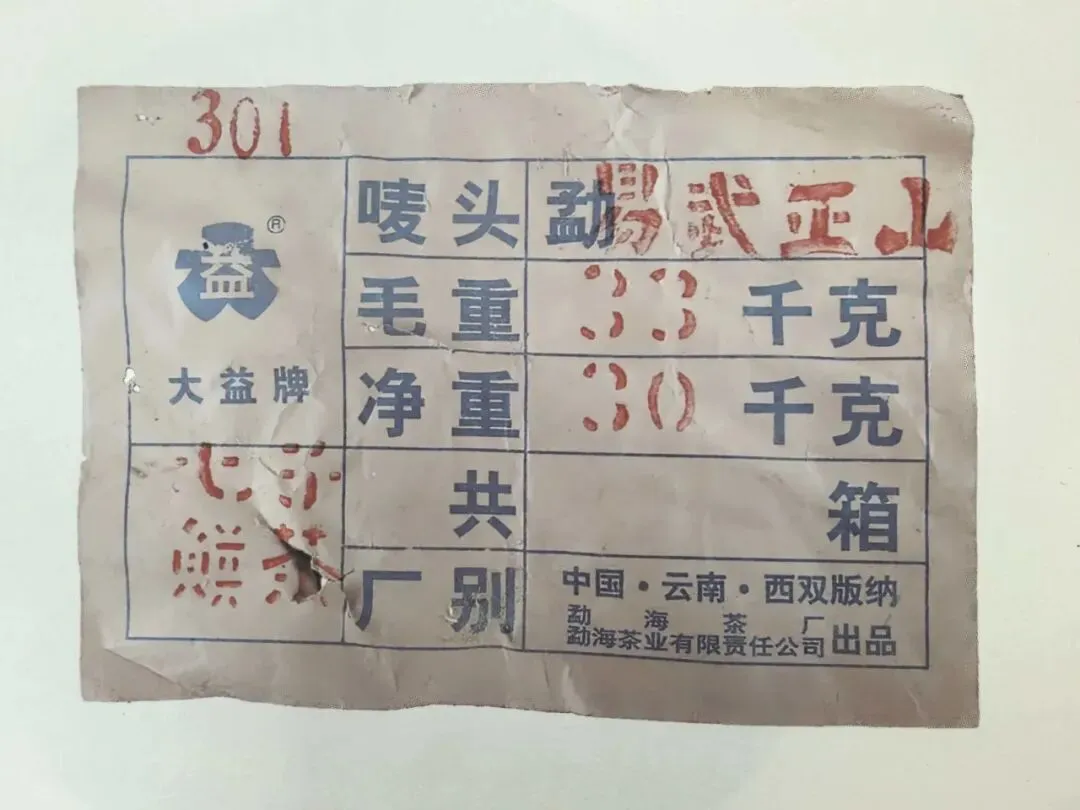 301
益®
大益牌
七子
餅茶
唛头 勐易武正山
毛重 33千克
净重 30千克
共 箱
厂别 中国·云南·西双版纳
勐海茶厂
勐海茶业有限责任公司 出品